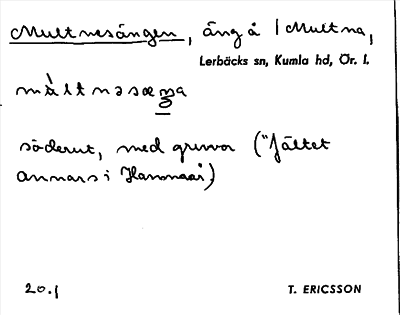 Multnesängen, äng å 1 Multna,
Lerbäcks sn, Kumla hd, Ör. l.
söderut, med gruvor ("fältet
annars i Hammaar)
20.1
T. ERICSSON